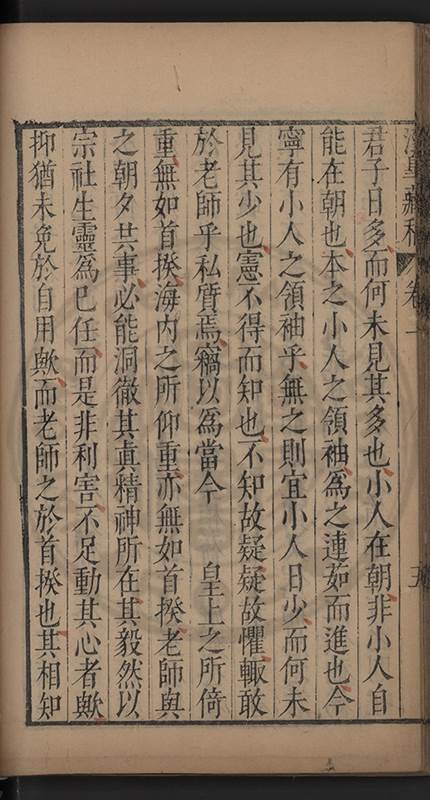 君子日多而何未見其多也小人在朝非小人自
能在朝也本之小人之領袖爲之連茹而進也今
寧有小人之領袖乎無之則宜小人日少而何未
見其少也憲不得而知也不知故疑疑故懼輙敢
於老師乎私質焉竊以爲當今 皇上之所倚
重無如首揆海内之所仰重亦無如首揆老師與
之朝夕共事必能洞徹其眞精神所在其毅然以
宗社生靈爲巳任而是非利害不足動其心者歟
抑猶未免於自用歟而老師之於首揆也其相知